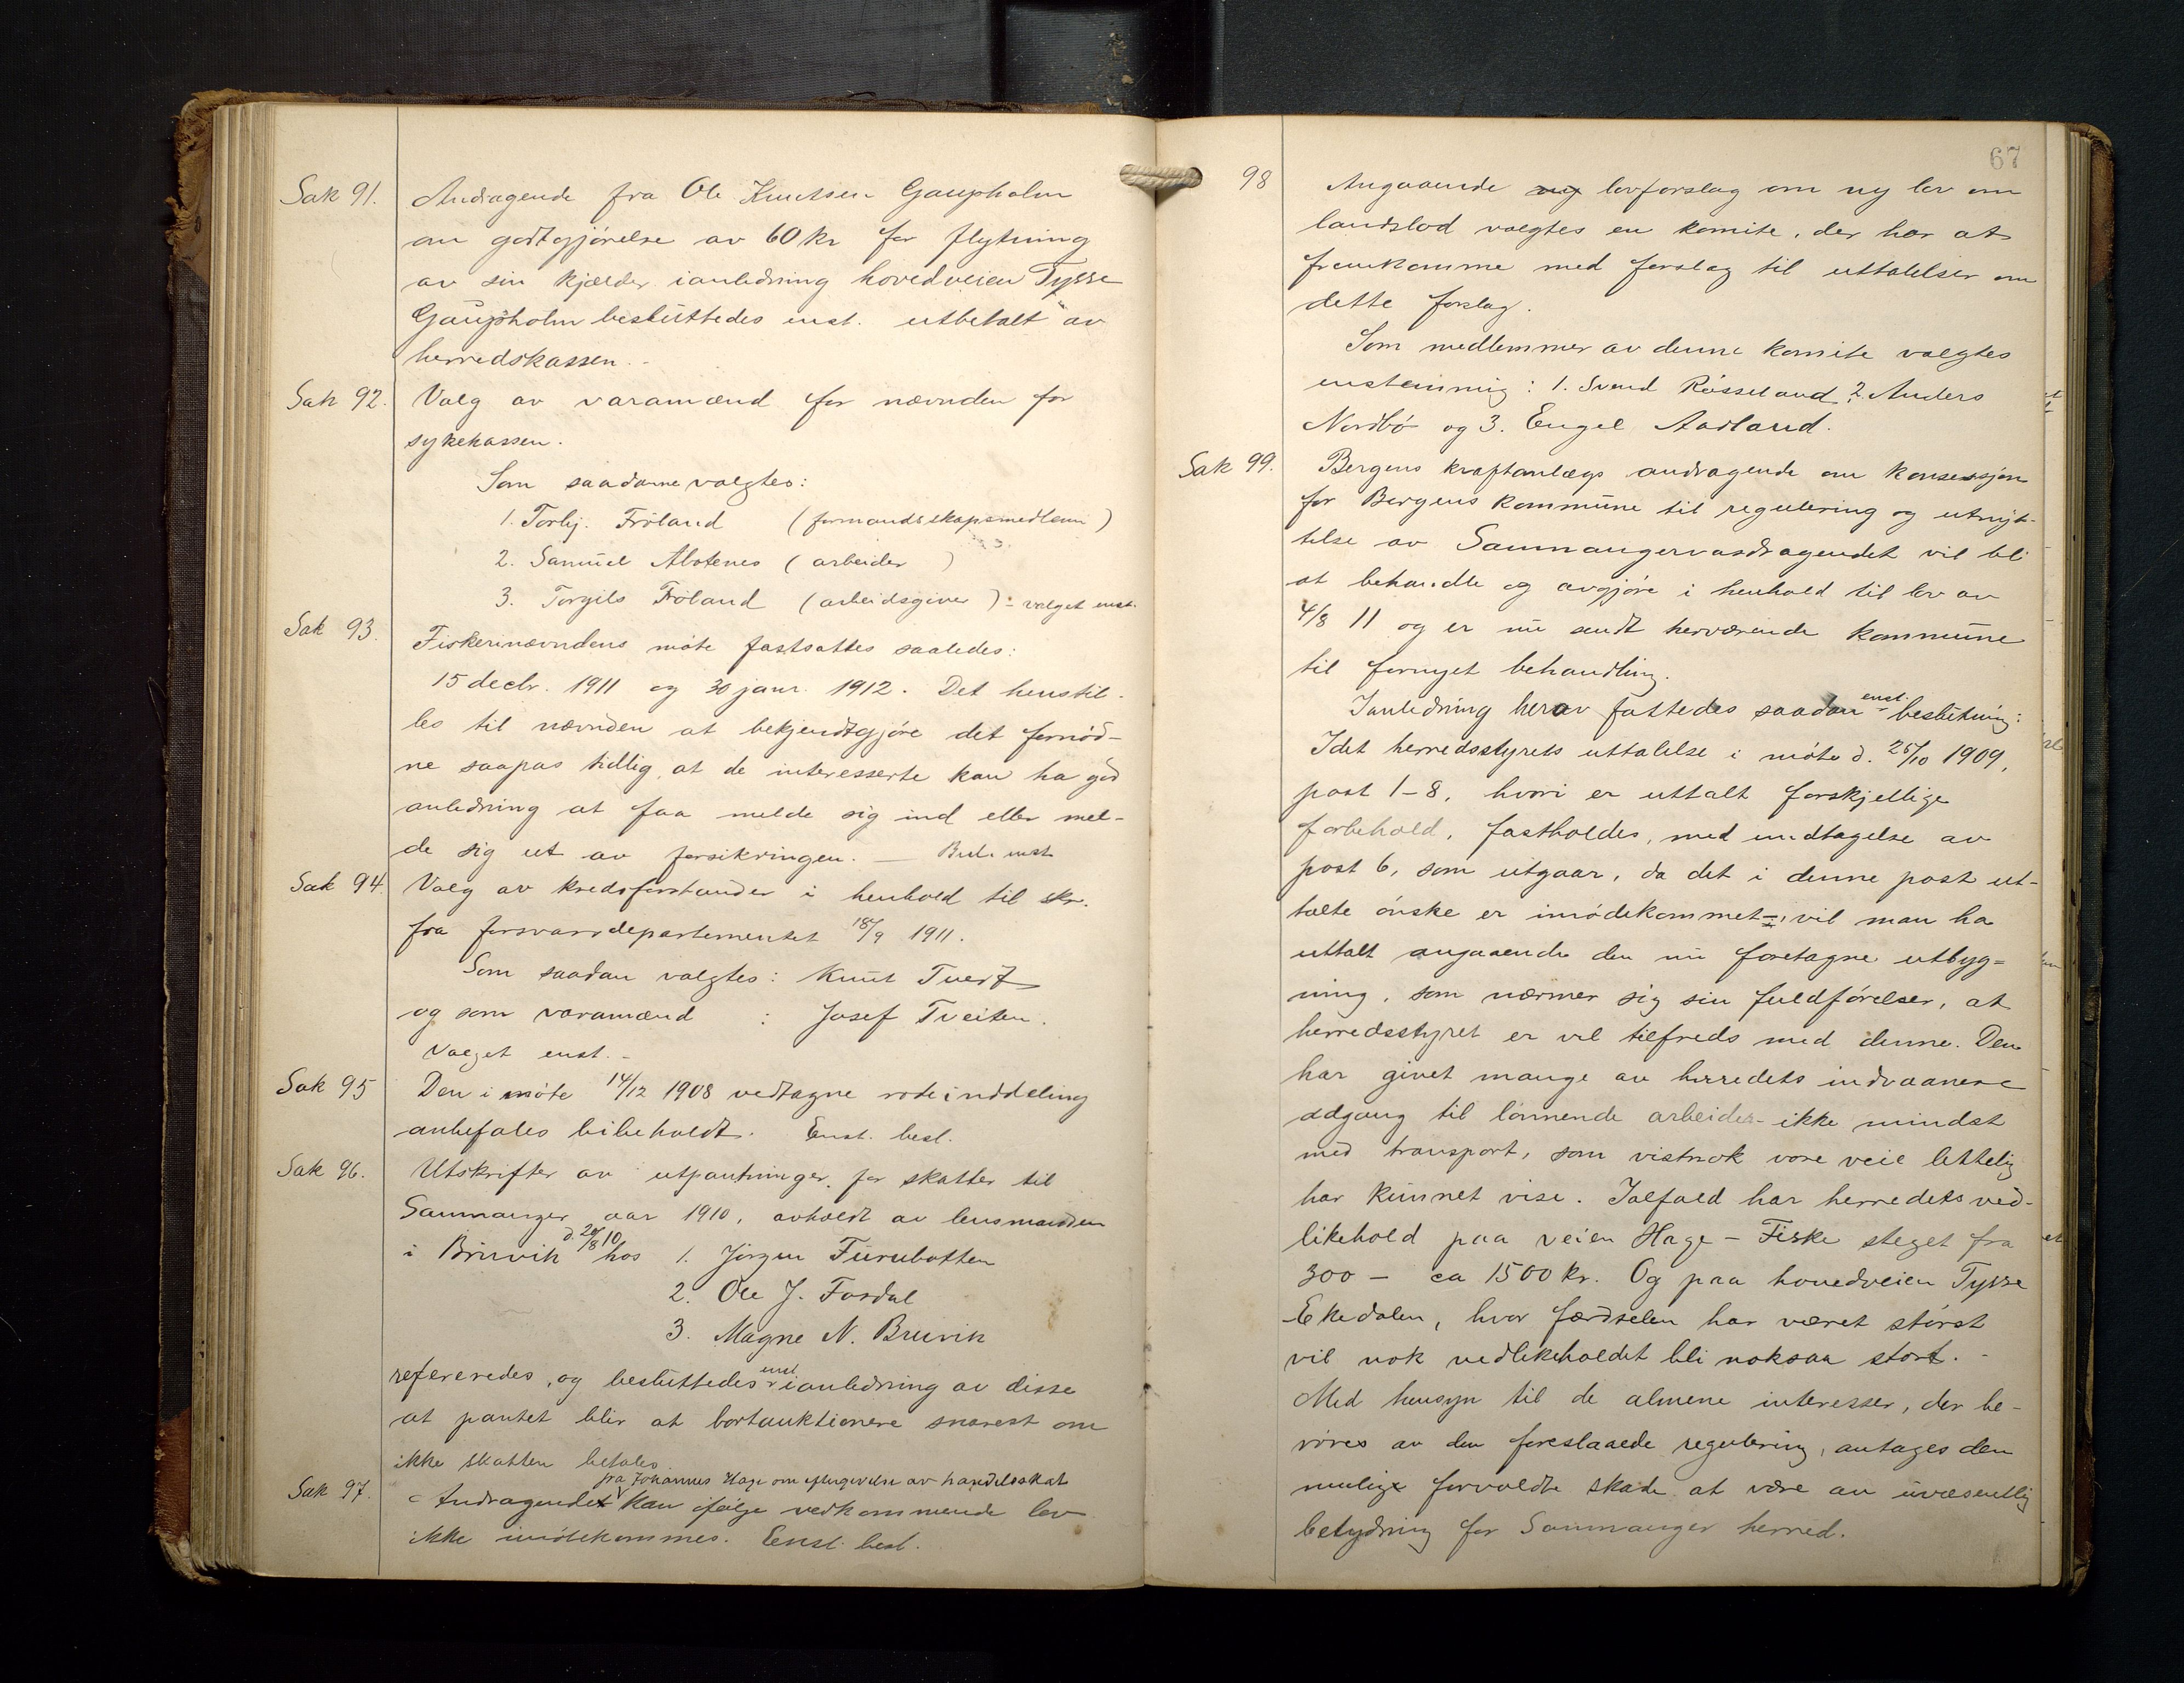 Sak 91. Andragende fra Ole Knutsen Gaupholm
om godtgjörelse av 60 kr for flytning
av sin kjælder ianledning hovedveien Tysse
Gaupholm besluttedes enst. utbetalt av
herredskassen.-
Sak 92. Valg av varamænd for nævnden for
sykekassen.
Som saadanne valgtes:
1. Torbj. Fröland (formandsskapsmedlem)
2. Samuel Aldtenes (arbeider)
3. Torgils Fröland (arbeidsgiver) - valget enst.
Sak 93. Fiskerinævndens möte fastsattes saaledes:
15 decbr. 1911 og 30 janr. 1912. Det henstil-
les til nævnden at bekjendtgjöre det fornöd-
ne saapas tidlig, at de interesserte kan ha god
anledning at faa melde sig ind eller mel-
de sig ut av forsikringen. — Besl. enst.
Sak 94. Valg av kredsforstander i henhold til skr.
fra forsvarsdepartementet 18/9 1911.
Som saadan valgtes: Knut Tveit
og som varamænd : Josef Tveiten.
Valget enst. -
Sak 95 Den i möte 14/12 1908 vedtagne rodeinddeling
anbefales bibeholdt. Enst. besl.
Sak 96. Utskrifter av utpantninger for skatter til
Samnanger aar 1910, avholdt av lensmanden
i Bruvik d. 20/8 10 hos 1. Jörgen Furubotten
2. Ole J. Fosdal
3. Magne N. Bruvik
refereredes, og besluttedes enst. ianledning av disse
at pantet blir at bortauktionere snarest om
ikke skatten betales.
fra Johannes Hage om eftergivelse av handelsskat
Sak 97. Andragendet kan ifölge vedkommende lov
ikke imötekommes. Enst. besl.
67
98 Angaaende ny lovforslag om ny lov om
landslod valgtes en komite, der har at
fremkomme med forslag til uttalelser om
dette forslag.
Som medlemmer av denne komite valgtes
enstemmig: 1. Svend Rösseland, 2. Anders
Nordbö og 3. Engel Aadland.
Sak 99. Bergens kraftanlægs andragende om konsessjon
for Bergens kommune til regulering og utnyt-
telse av Samnangervasdragendet vil bli
at behandle og avgjöre i henhold til lov av
4/8 11 og er nu sendt herværende kommune
til fornyet behandling.
Ianledning herav fattedes saadan enst. beslutning:
Idet herredsstyrets uttalelse i möte d. 25/10 1909,
post 1-8, hvori er uttalt forskjellige
forbehold, fastholdes, med undtagelse av
post 6, som utgaar, da det i denne post ut-
talte önske er imödekommet -, vil man ha
uttalt angaaende den nu foretagne utbyg-
ning, som nærmer sig sin fuldförelse, at
herredsstyret er vel tilfreds med denne. Den
har givet mange av herredets indvaanere
adgang til lönnende arbeider - ikke mindst
med transport, som vistnok vore veie lettelig
har kunnet vise. Ialfald har herredets ved-
likehold paa veien Hage - Fiske steget fra
300 - ca 1500 kr. Og paa hovedveien Tysse
Ekedalen, hvor færdselen har været störst
vil nok vedlikeholdet bli noksaa stort. -
Med hensyn til de almene interesser, der be-
röres av den foreslaaede regulering, antages den
mulige forvoldte skade at være av uvæsentlig
betydning for Samnanger herred.